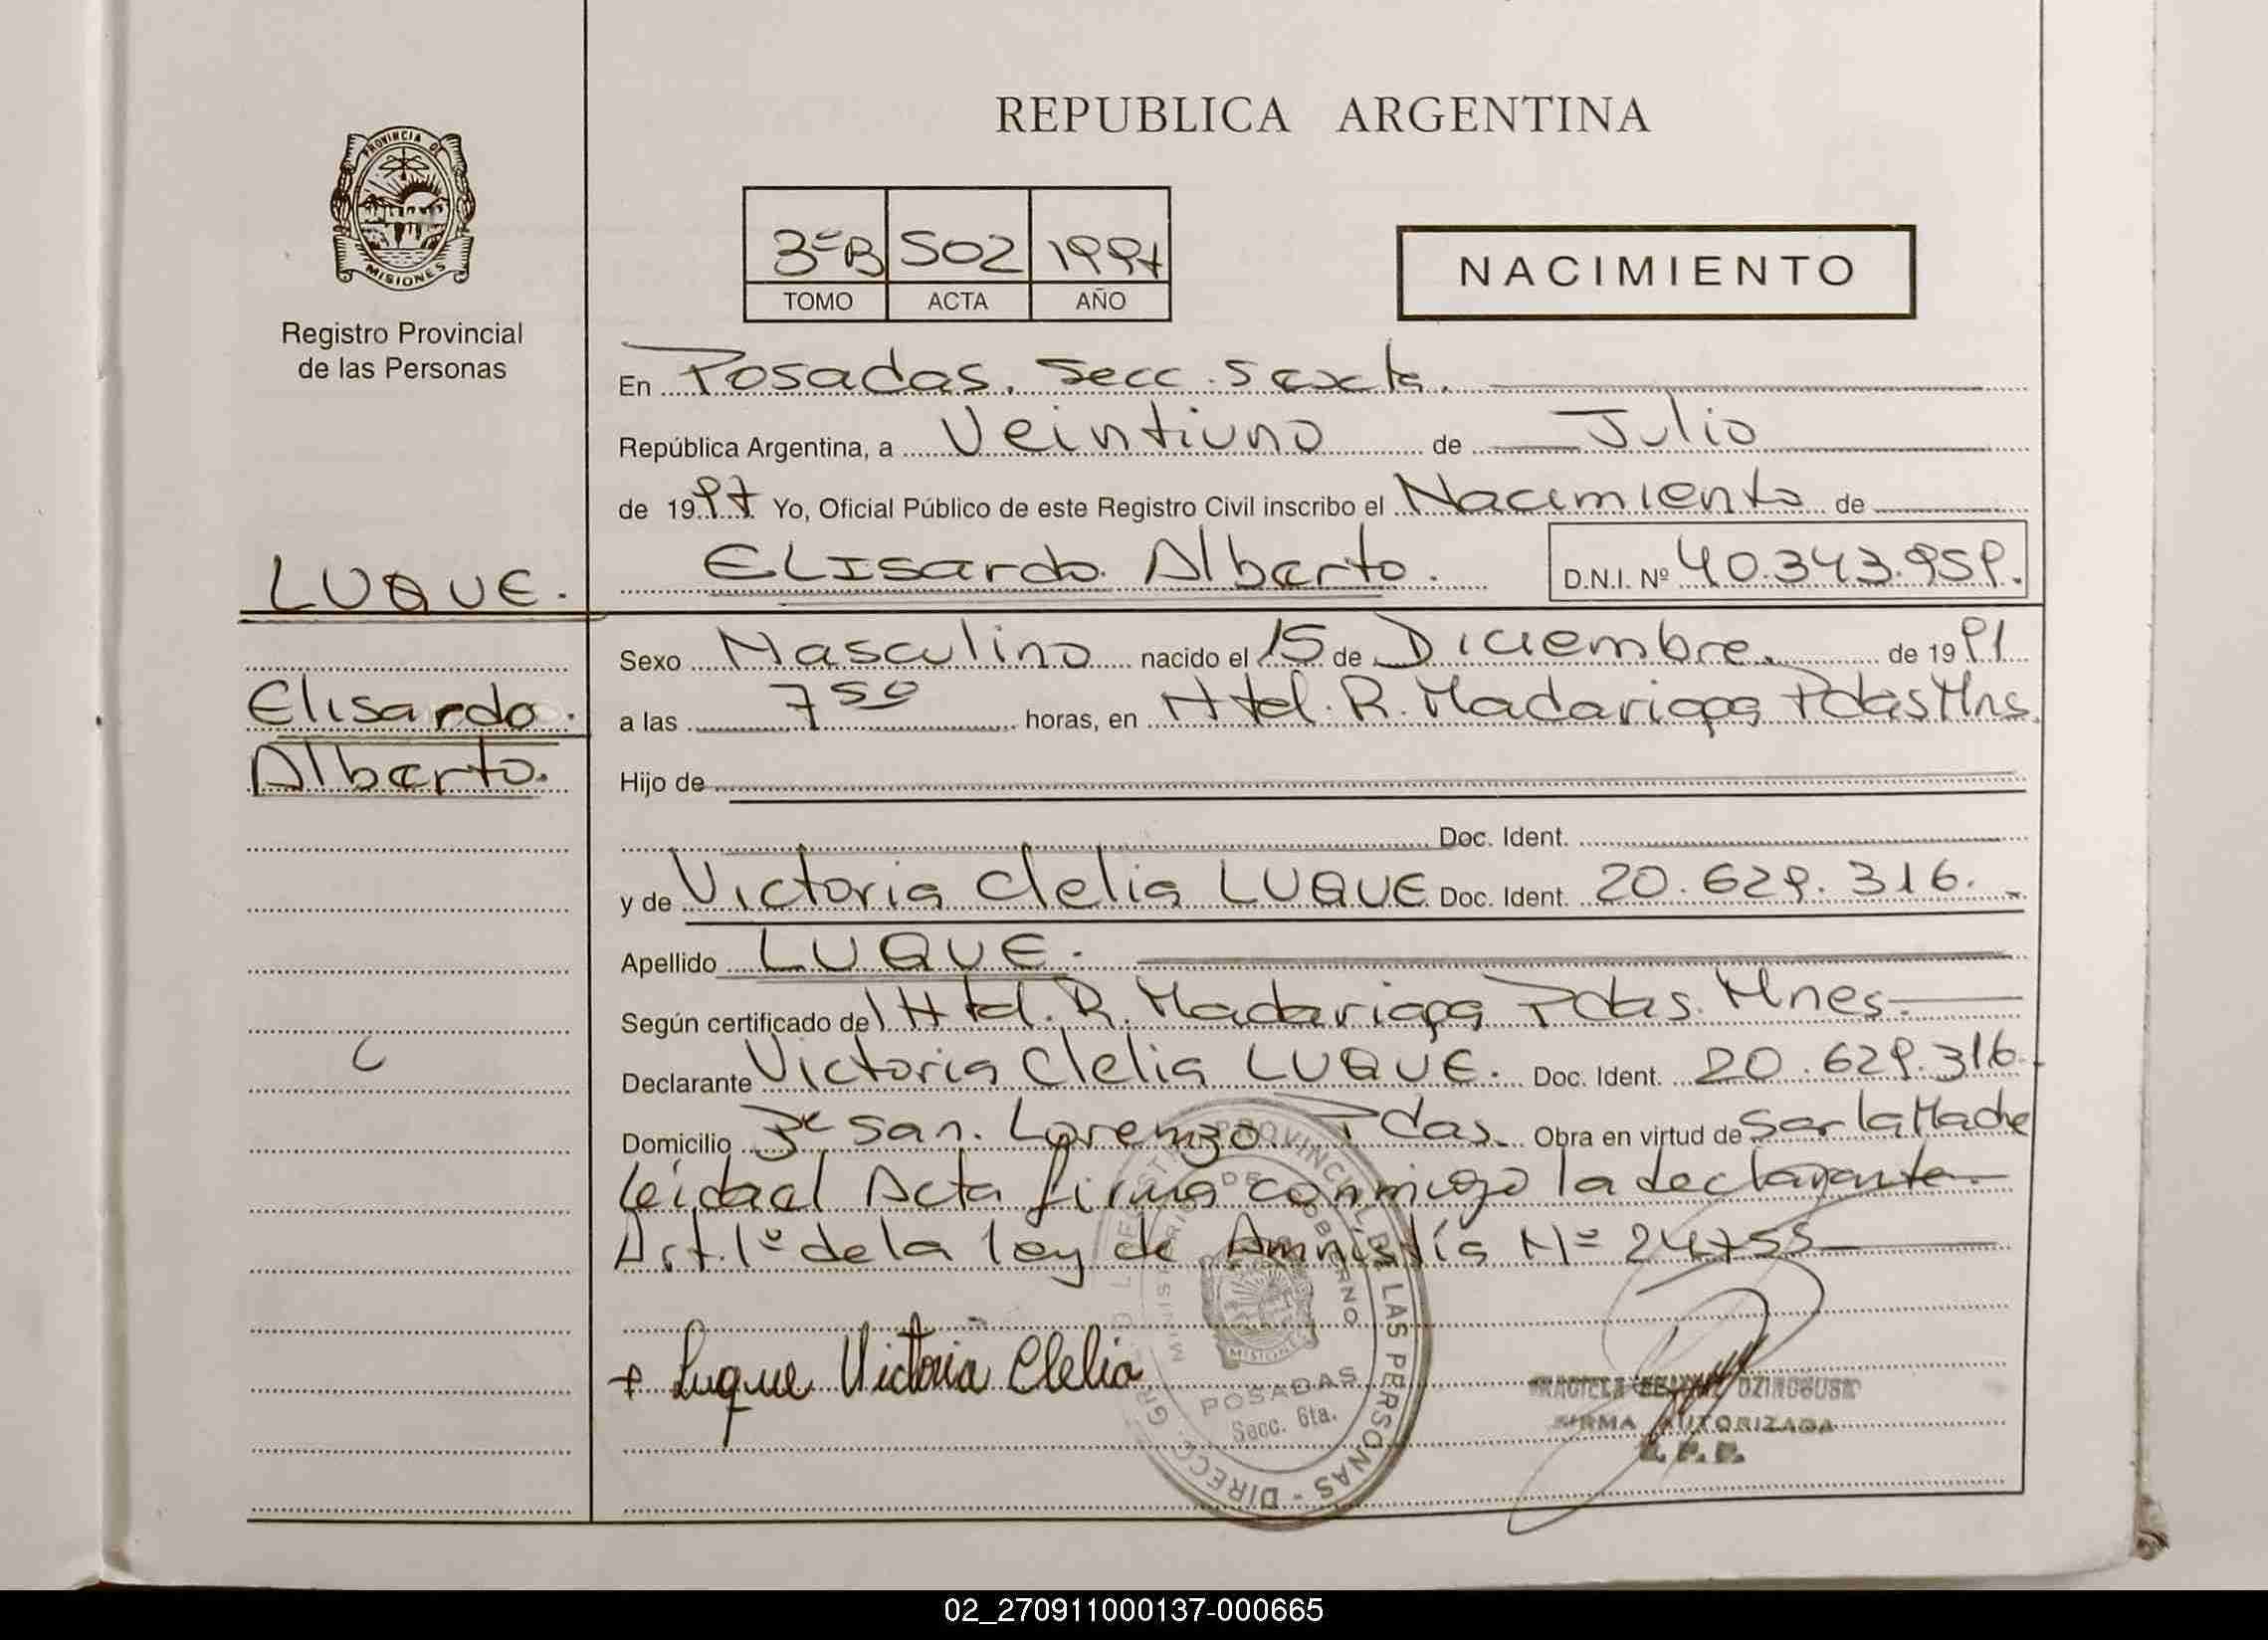 REPUBLICA ARGENTINA
PROVINCIA DE
MISIONES
Registro Provincial
de las Personas
3ºB 502 1997
TOMO ACTA AÑO
NACIMIENTO
En Posadas. Secc. Sexta.
República Argentina, a Veintiuno de Julio
de 1997 Yo, Oficial Público de este Registro Civil inscribo el Nacimiento de
LUQUE. Elisardo Alberto. D.N.I. Nº 40.343.959.
Sexo Masculino nacido el 15 de Diciembre. de 1991
Elisardo. a las 7 50 horas, en Htal. R. Madariaga Pdas Mns.
Alberto. Hijo de
Doc. Ident.
y de Victoria Clelia LUQUE Doc. Ident. 20.629.316.
Apellido LUQUE.
Según certificado del Htal. R. Madariaga Pdas. Mnes.
Declarante Victoria Clelia LUQUE. Doc. Ident. 20.629.316
Domicilio San. Lorenzo. Pdas. Obra en virtud de Ser la Madre
Leida el Acta firma conmigo la declarante
Art. 1º de la ley de Amnistía Nº 24755
+ Luque Victoria Clelia
PROVINCIAL DE LAS PERSONAS - DIRECC. GRAL.
MINISTERIO DE GOBIERNO
MISIONES
POSADAS
Secc. 6ta.
FIRMA AUTORIZADA
02_270911000137-000665